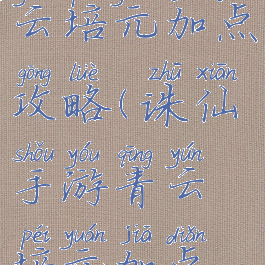 云培元加点
gōng lüè zhū xiān
攻略(诛仙
shǒu yóu qīng yún
手游青云
péi yuán jiā diǎn
培元加点